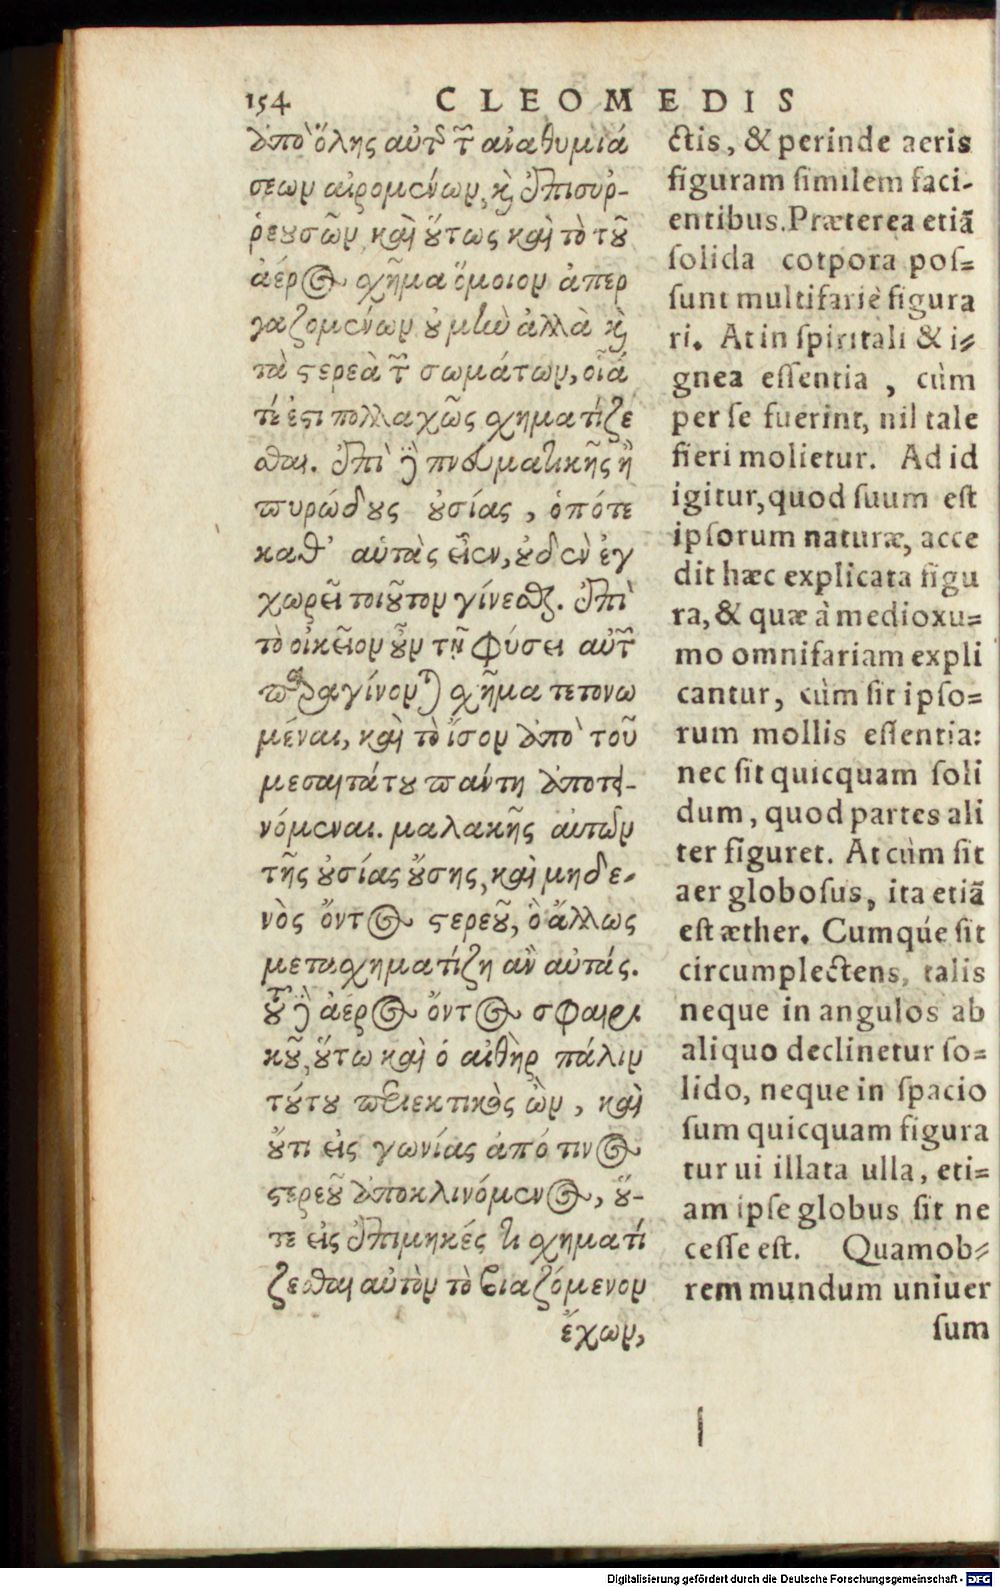 154 CLEOMEDIS
ἀπὸ ὅλης αὐτῆς τῶν ἀναθυμιά
σεων αἰρομένων, καὶ ἐπισυρ-
ρευσῶν, καὶ οὕτως καὶ τὸ τοῦ
ἀέρος σχῆμα ὅμοιον ἀπερ
γαζομένων οὐ μὴν ἀλλὰ καὶ
τὰ στερεὰ τῶν σωμάτων, οἷά
τέ ἐστι πολλαχῶς σχηματίζε
σθαι. ἐπὶ δὲ πνευματικῆς ἢ
πυρώδους οὐσίας, ὁπότε
καθ' αὑτὰς εἶεν, οὐδὲν ἐγ
χωρεῖ τοιοῦτον γίνεσθαι. ἐπὶ
τὸ οἰκεῖον οὖν τῇ φύσει αὐτῶν
παραγίνονται σχῆμα τετονω
μέναι, καὶ τὸ ἴσον ἀπὸ τοῦ
μεσαιτάτου πάντη ἀποτει-
νόμεναι. μαλακῆς αὐτῶν
τῆς οὐσίας οὔσης, καὶ μηδε-
νὸς ὄντος στερεοῦ, ὃ ἄλλως
μετασχηματίζῃ ἂν αὐτάς.
τοῦ δὲ ἀέρος ὄντος σφαιρι
κοῦ, οὕτω καὶ ὁ αἰθὴρ πάλιν
τούτου περιεκτικὸς ὢν, καὶ
οὔτι εἰς γωνίας ἀπό τινος
στερεοῦ ἀποκλινόμενος, οὔ-
τε εἰς ἐπιμηκές τι σχηματί
ζεσθαι αὐτὸν τὸ βιαζόμενον
ἔχων,
ctis, & perinde aeris
figuram similem faci-
entibus. Præterea etiã
solida cotpora pos=
sunt multifariè figura
ri. At in spiritali & i=
gnea essentia , cùm
per se fuerint, nil tale
fieri molietur. Ad id
igitur, quod suum est
ipsorum naturæ, acce
dit hæc explicata figu
ra, & quæ à medioxu=
mo omnifariam expli
cantur, cùm sit ipso=
rum mollis essentia:
nec sit quicquam soli
dum, quod partes ali
ter figuret. At cùm sit
aer globosus, ita etiã
est æther. Cumqúe sit
circumplectens, talis
neque in angulos ab
aliquo declinetur so=
lido, neque in spacio
sum quicquam figura
tur ui illata ulla, eti=
am ipse globus sit ne
cesse est. Quamob=
rem mundum uniuer
sum
Digitalisierung gefördert durch die Deutsche Forschungsgemeinschaft - DFG